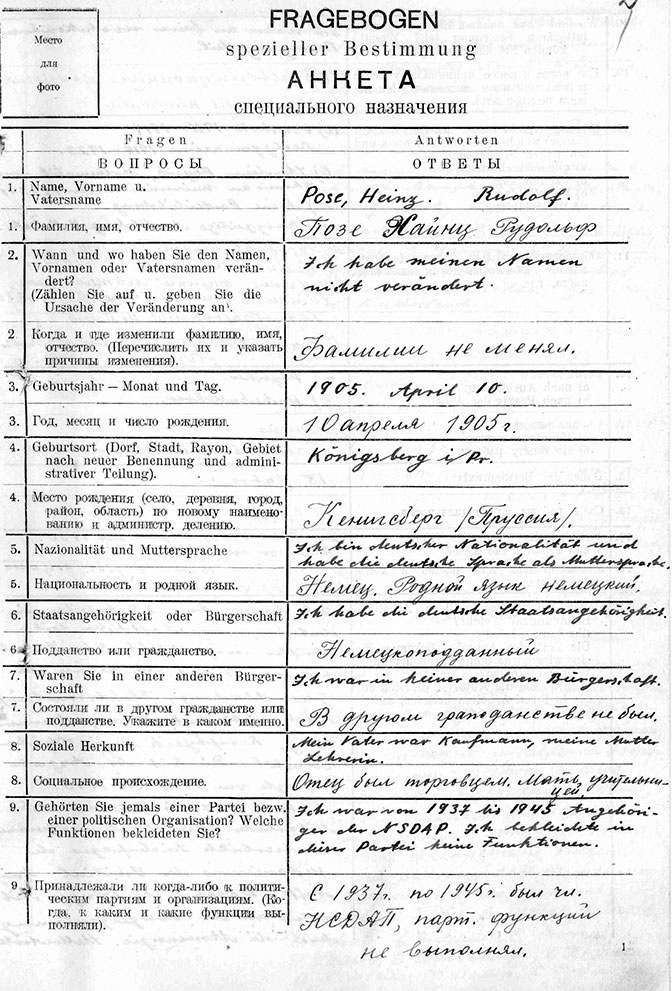 Место
для
фото
FRAGEBOGEN
spezieller Bestimmung
АНКЕТА
специального назначения
Fragen
Antworten
ВОПРОСЫ
ОТВЕТЫ
1. Name, Vorname u.
Vatersname
Pose, Heinz. Rudolf.
1. Фамилия, имя, отчество.
Позе Хайнц Рудольф
2. Wann und wo haben Sie den Namen,
Vornamen oder Vatersnamen verän-
dert?
(Zählen Sie auf u. geben Sie die
Ursache der Veränderung an).
Ich habe meinen Namen
nicht verändert.
2 Когда и где изменили фамилию, имя,
отчество. (Перечислить их и указать
причины изменения).
Фамилии не менял.
3. Geburtsjahr — Monat und Tag.
1905. April 10.
3. Год, месяц и число рождения.
10 апреля 1905 г.
4. Geburtsort (Dorf, Stadt, Rayon, Gebiet
nach neuer Benennung und admini-
strativer Teilung).
Königsberg i/Pr.
4. Место рождения (село, деревня, город,
район, область) по новому наимено-
ванию и администр. делению.
Кенигсберг /Пруссия/.
5. Nazionalität und Muttersprache
Ich bin deutscher Nationalität und
habe die deutsche Sprache als Muttersprache.
5. Национальность и родной язык.
Немец. Родной язык немецкий.
6. Staatsangehörigkeit oder Bürgerschaft
Ich habe die deutsche Staatsangehörigkeit.
6 Подданство или гражданство.
Немецкоподданный
7. Waren Sie in einer anderen Bürger-
schaft
Ich war in keiner anderen Bürgerschaft.
7. Состояли ли в другом гражданстве или
подданстве. Укажите в каком именно.
В другом граподанстве не был.
8. Soziale Herkunft
Mein Vater war Kaufmann, meine Mutter
Lehrerin.
8. Социальное происхождение.
Отец был торговцем. Мать, учительни-
цей.
9. Gehörten Sie jemals einer Partei bezw.
einer politischen Organisation? Welche
Funktionen bekleideten Sie?
Ich war von 1937 bis 1945 Angehöri-
ger der NSDAP. Ich bekleidete in
dieser Partei keine Funktionen.
9 Принадлежали ли когда-либо к полити-
ческим партиям и организациям. (Ко-
гда, к каким и какие функции вы-
полняли).
С 1937 г. по 1945 г. был чл.
НСДАП, парт. функций
не выполнял.
1